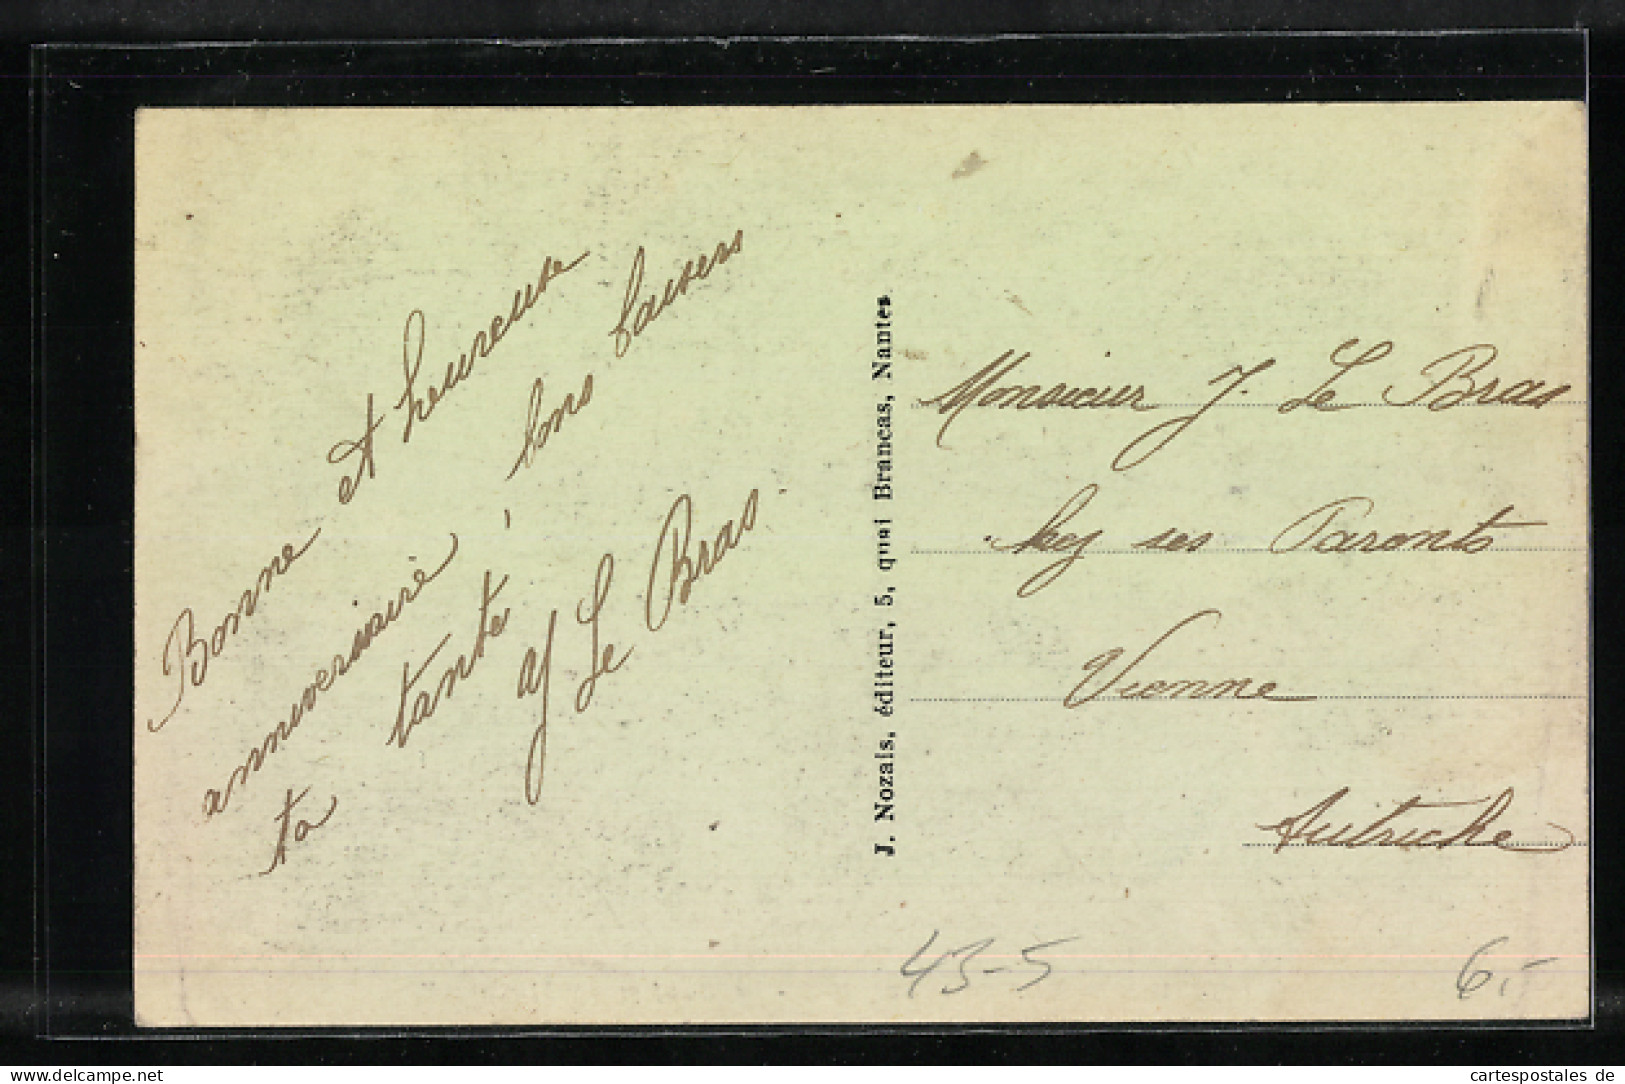 Bonne et heureuse
anniversaire bons baisers
ta tante
Le Bras
J. Nozais, éditeur, 5, quai Brancas, Nantes
Monsieur J. Le Bras
chez ses Parents
Vienne
Autriche
43-5
6,-
delcampe.net
cartespostales de